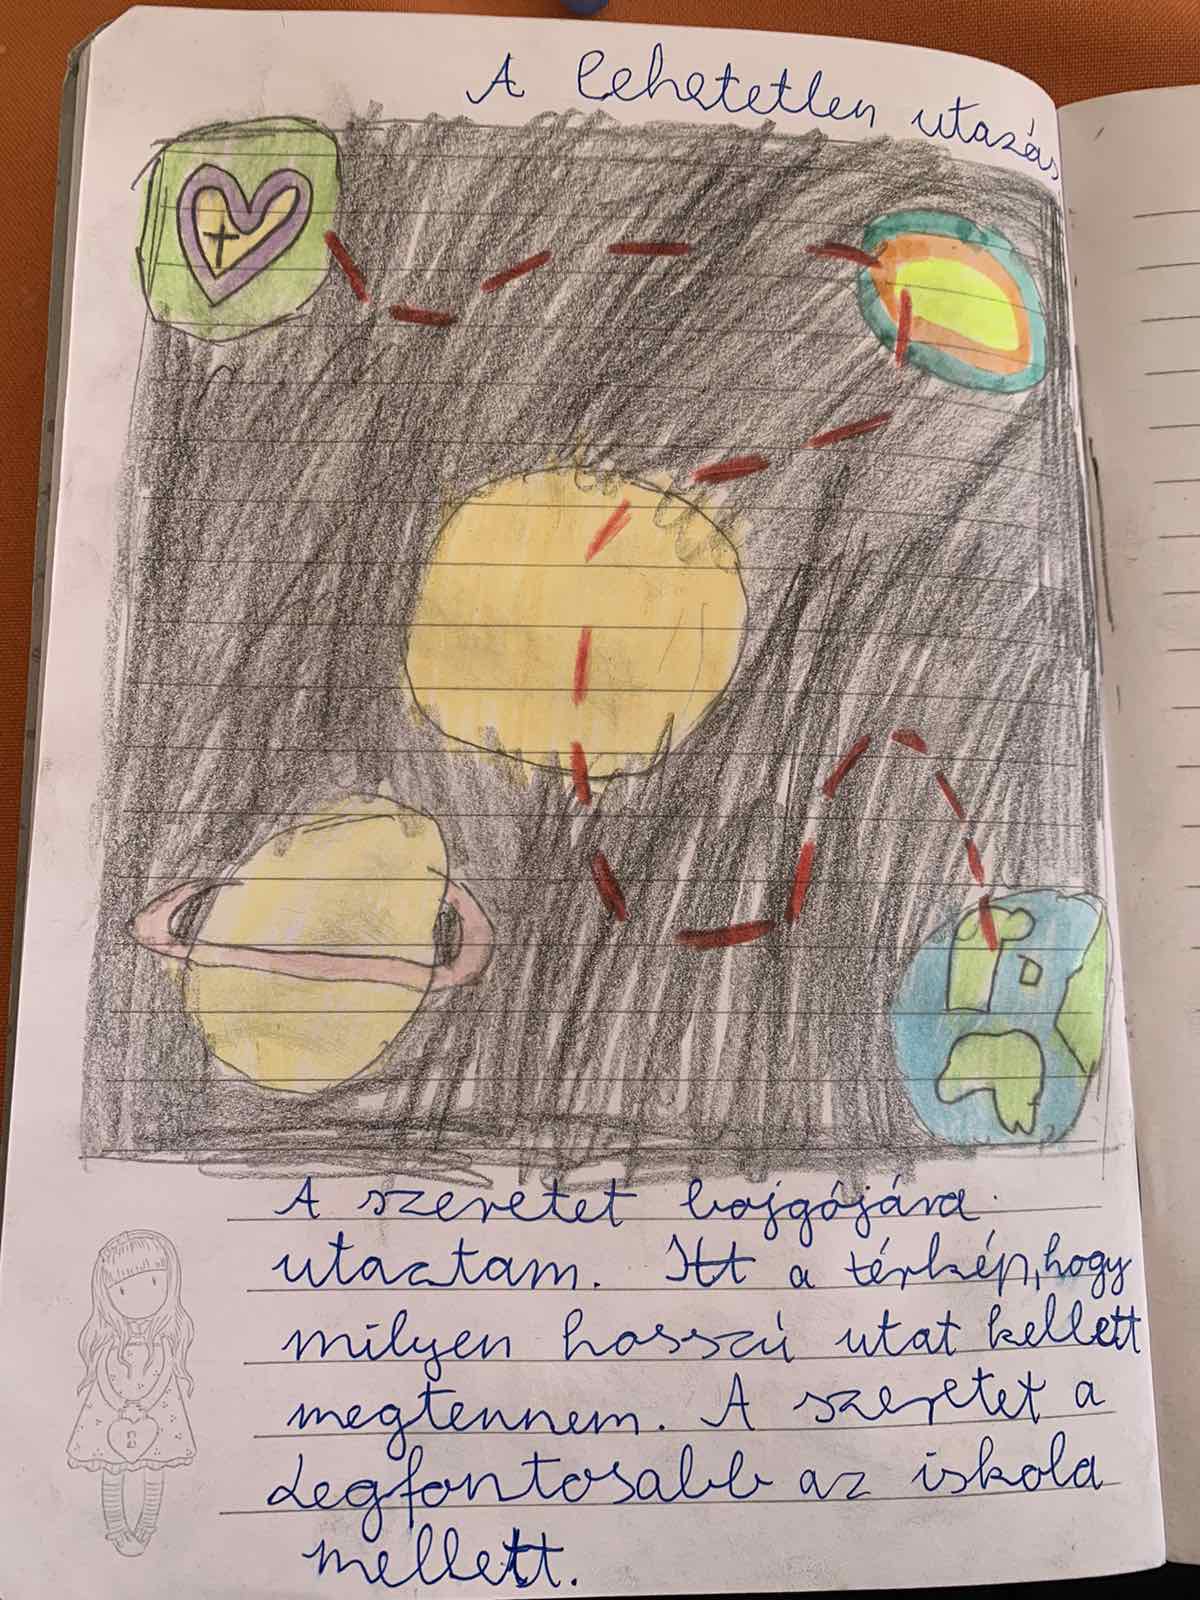 A lehetetlen utazás
A szeretet bojgójára
utaztam. Itt a térkép, hogy
milyen hosszú utat kellett
megtennem. A szeretet a
Legfontosabb az iskola
mellett.